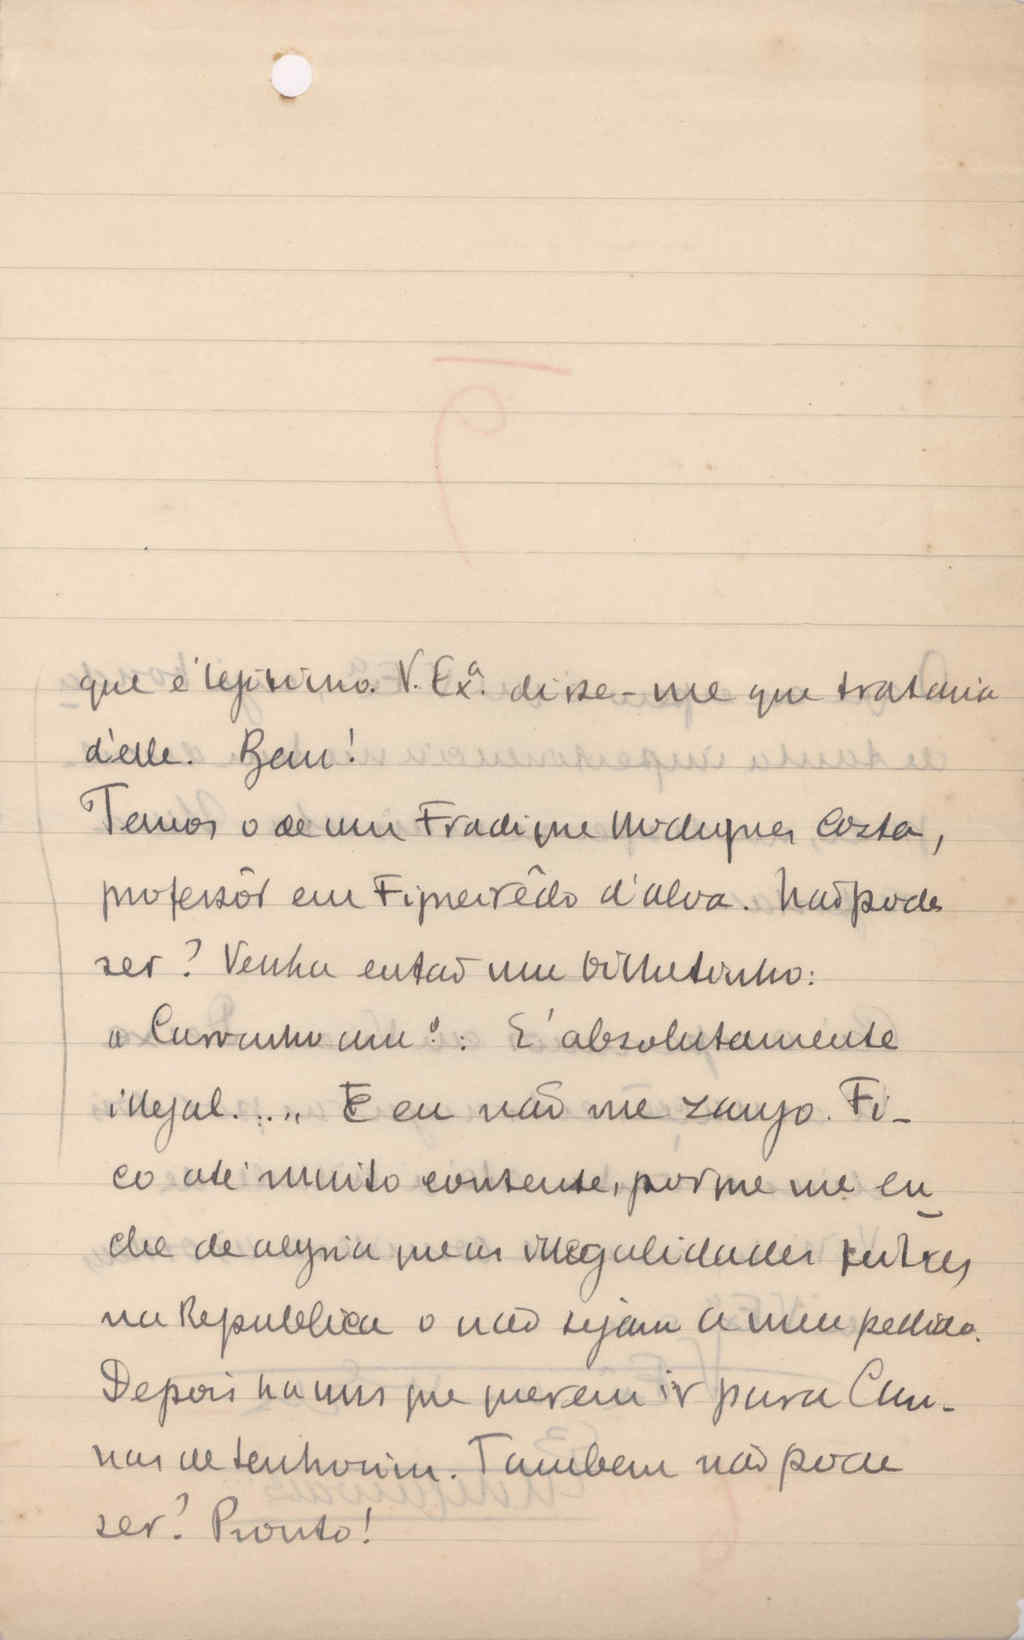 que é legitimo. V. Exª. disse-me que trataria
d'elle. Bem!
Temos o de um Fradique Costa,
professôr em Figueirêdo d'Alva. Não pode
ser? Venha então um bilhetinho:
"Carvinho am.º: É absolutamente
illegal...." E eu não me zango. Fi-
co até muito contente, porque me en
che de alegria que as illegalidades
na Republica o não sejam a meu pedido.
Depois ha uns que querem ir para Can-
nas de Senhorim. Tambem não pode
ser? Pronto!